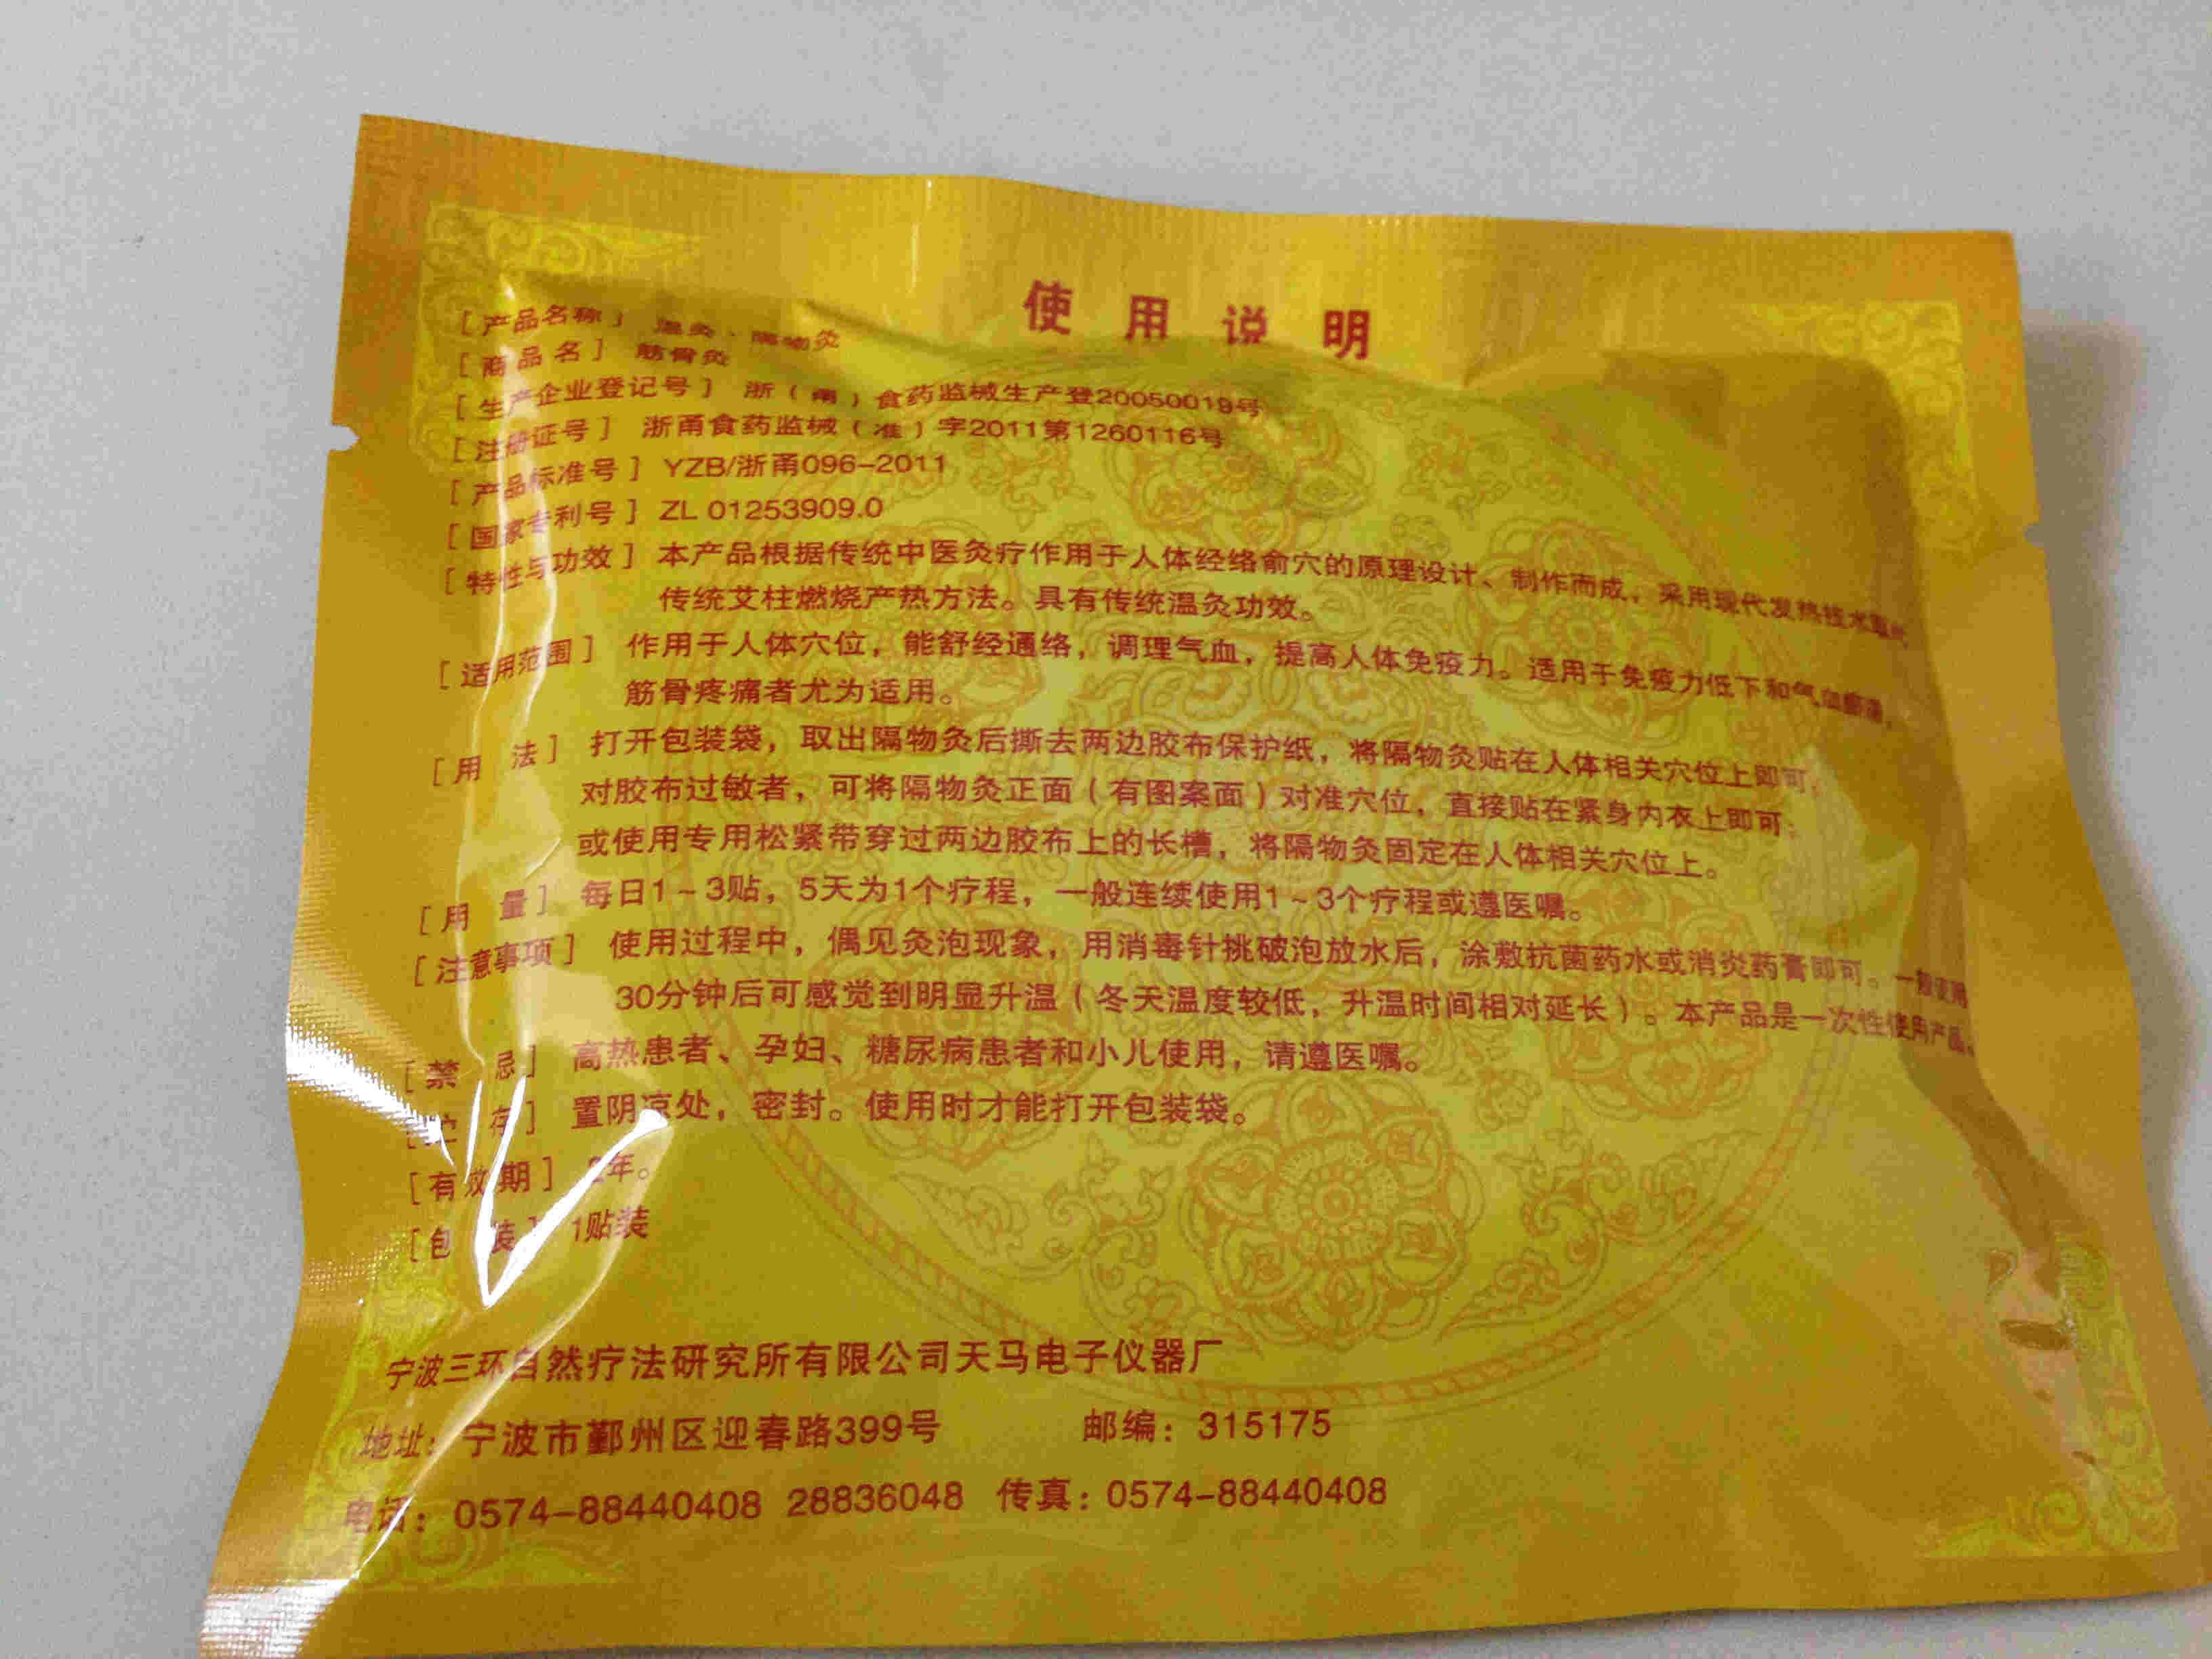 使用说明
[产品名称] 温灸·隔物灸
[商品名] 筋骨灸
[生产企业登记号] 浙(甬)食药监械生产登20050019号
[注册证号] 浙甬食药监械(准)字2011第1260116号
[产品标准号] YZB/浙甬096-2011
[国家专利号] ZL 01253909.0
[特性与功效] 本产品根据传统中医灸疗作用于人体经络俞穴的原理设计、制作而成，采用现代发热技术取代
传统艾柱燃烧产热方法。具有传统温灸功效。
[适用范围] 作用于人体穴位，能舒经通络，调理气血，提高人体免疫力。适用于免疫力低下和气血瘀滞，
筋骨疼痛者尤为适用。
[用 法] 打开包装袋，取出隔物灸后撕去两边胶布保护纸，将隔物灸贴在人体相关穴位上即可；
对胶布过敏者，可将隔物灸正面(有图案面)对准穴位，直接贴在紧身内衣上即可；
或使用专用松紧带穿过两边胶布上的长槽，将隔物灸固定在人体相关穴位上。
[用 量] 每日1~3贴，5天为1个疗程，一般连续使用1~3个疗程或遵医嘱。
[注意事项] 使用过程中，偶见灸泡现象，用消毒针挑破泡放水后，涂敷抗菌药水或消炎药膏即可。一般使用
30分钟后可感觉到明显升温(冬天温度较低，升温时间相对延长)。本产品是一次性使用产品。
[禁 忌] 高热患者、孕妇、糖尿病患者和小儿使用，请遵医嘱。
[贮 存] 置阴凉处，密封。使用时才能打开包装袋。
[有效期] 2年。
[包 装] 1贴装
宁波三环自然疗法研究所有限公司天马电子仪器厂
地址：宁波市鄞州区迎春路399号 邮编：315175
电话：0574-88440408 28836048 传真：0574-88440408